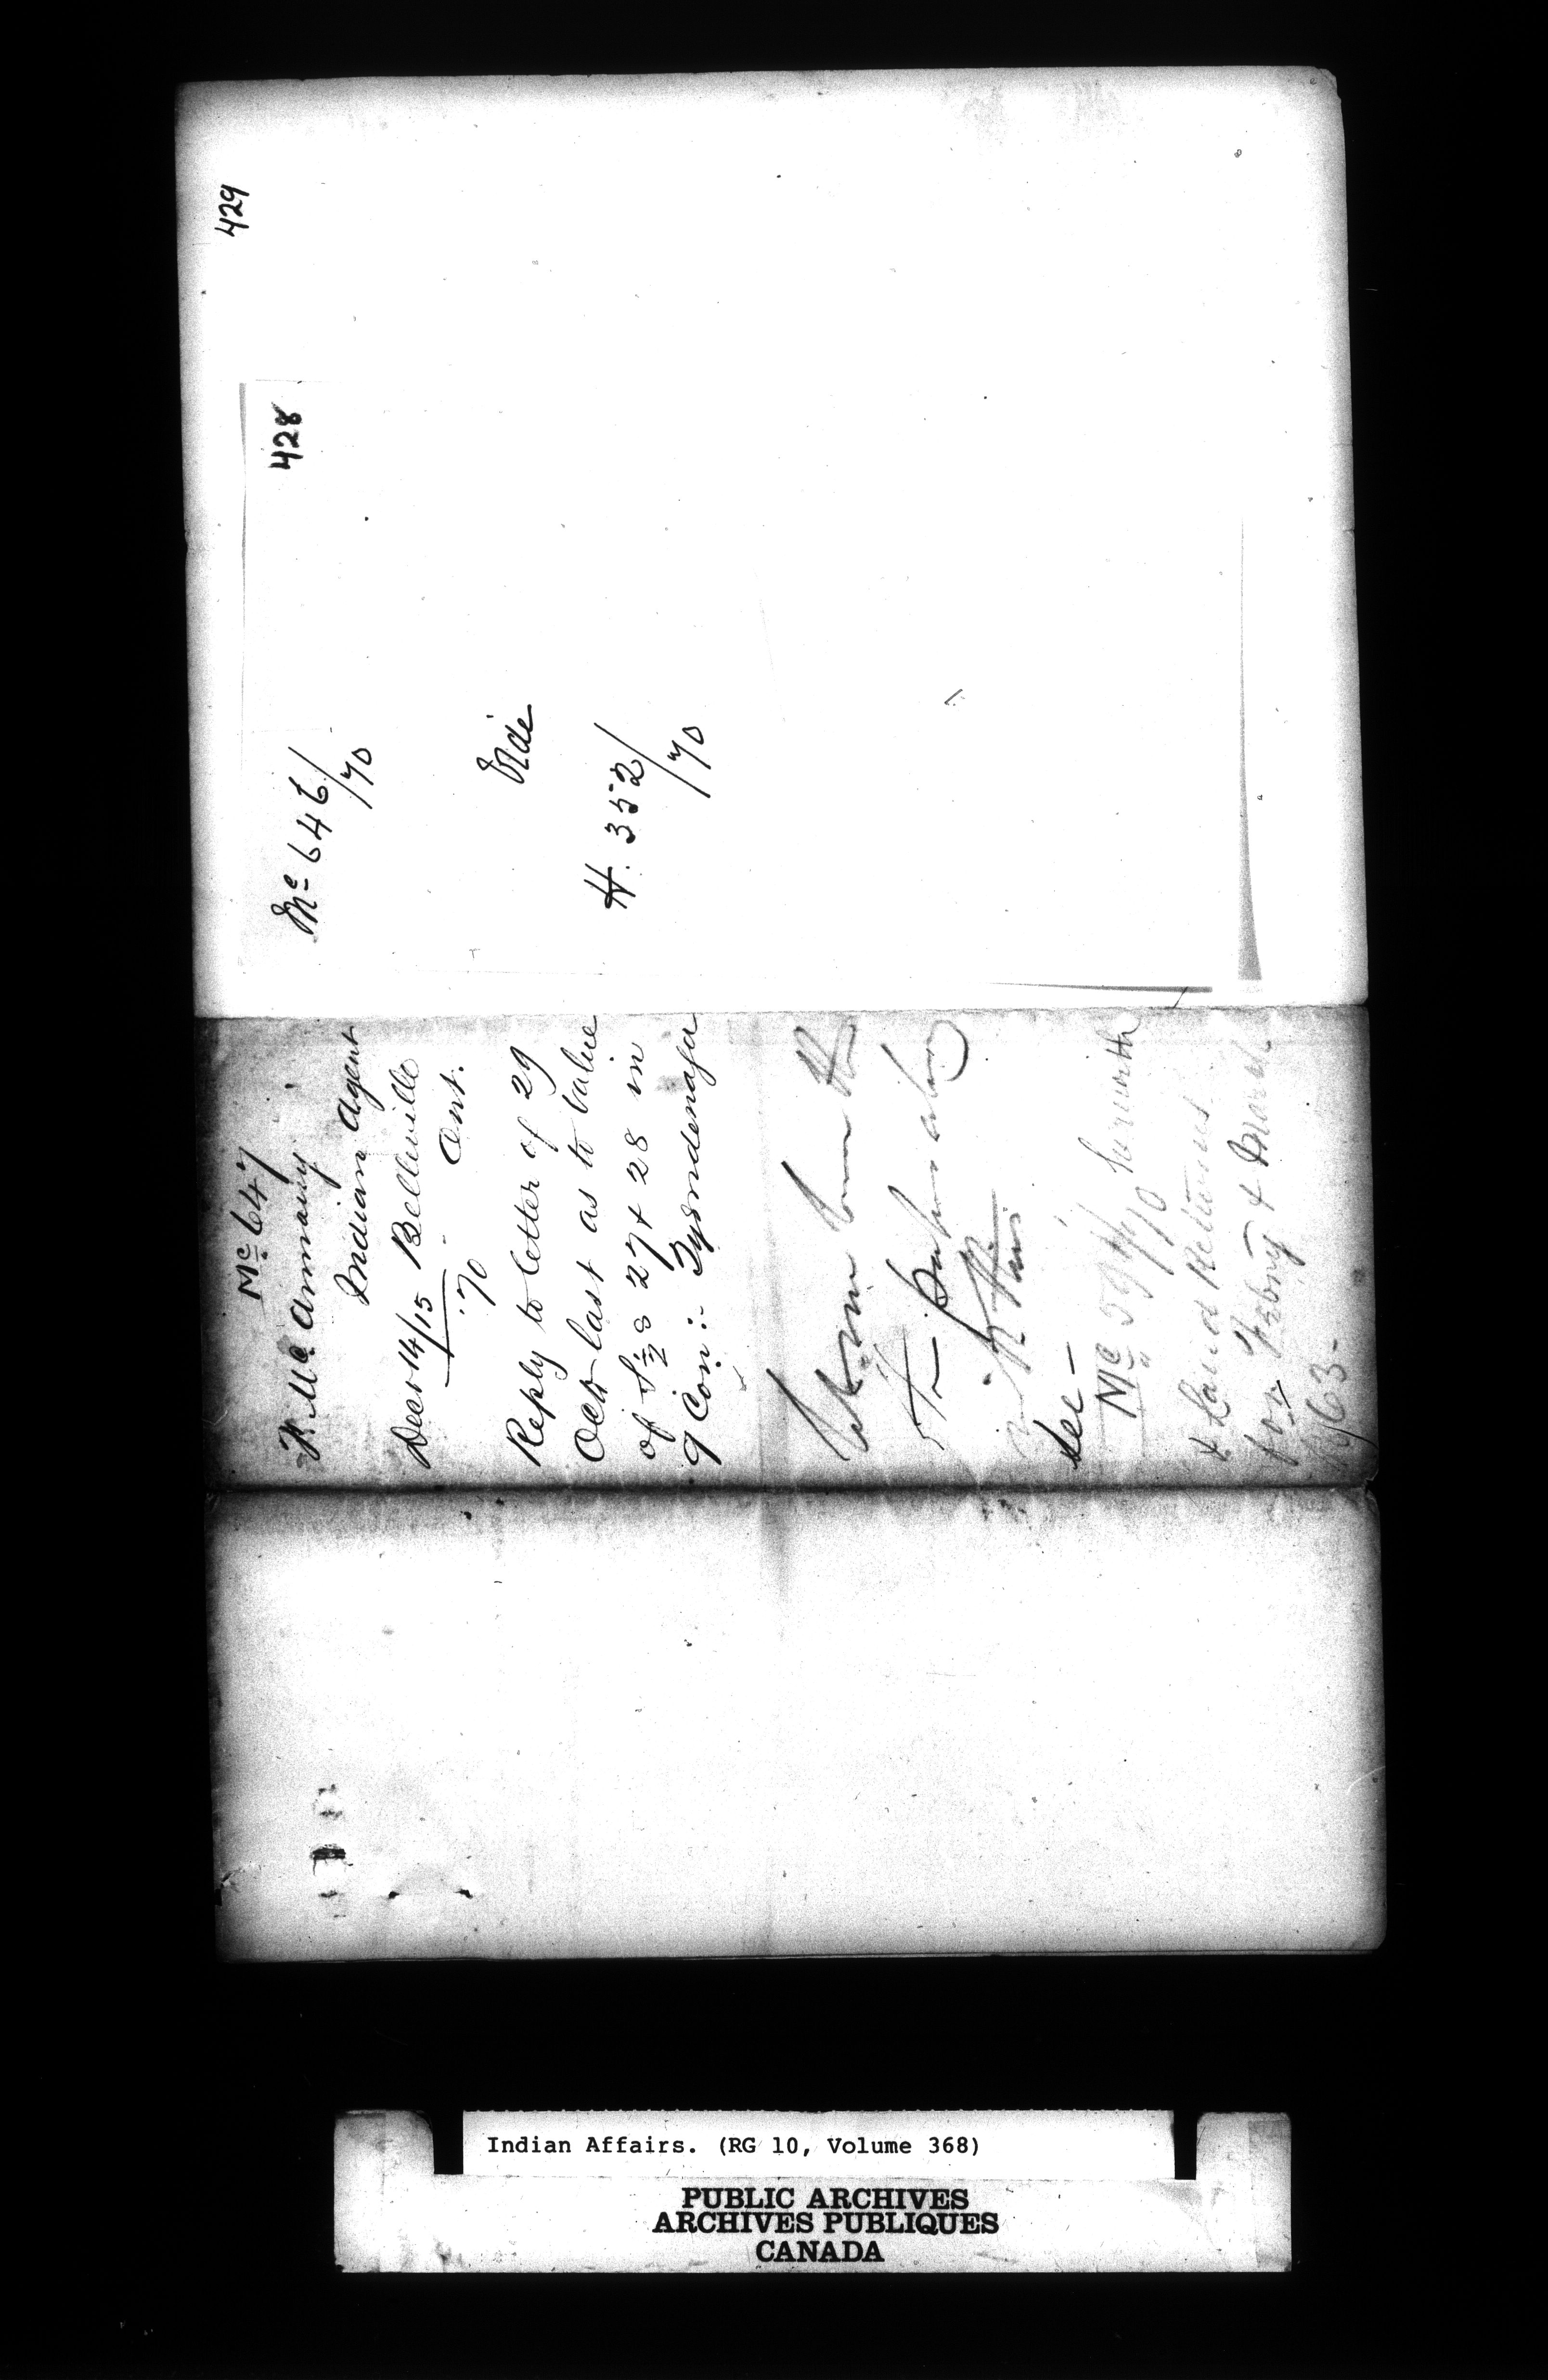 429
428
Mc 646/70
Vide
H. 352/70
Mc 647
Mc Annany
Indian Agent
Decr 14/15 Belleville
'70 Ont.
Reply to letter of 29
Octr last as to value
of S ½ s 27 & 28 in
9 Con: Tyendenaga
See -
Mc 594/70 herewith
& Land Returns
for Febry & March
1863-
Indian Affairs. (RG 10, Volume 368)
PUBLIC ARCHIVES
ARCHIVES PUBLIQUES
CANADA